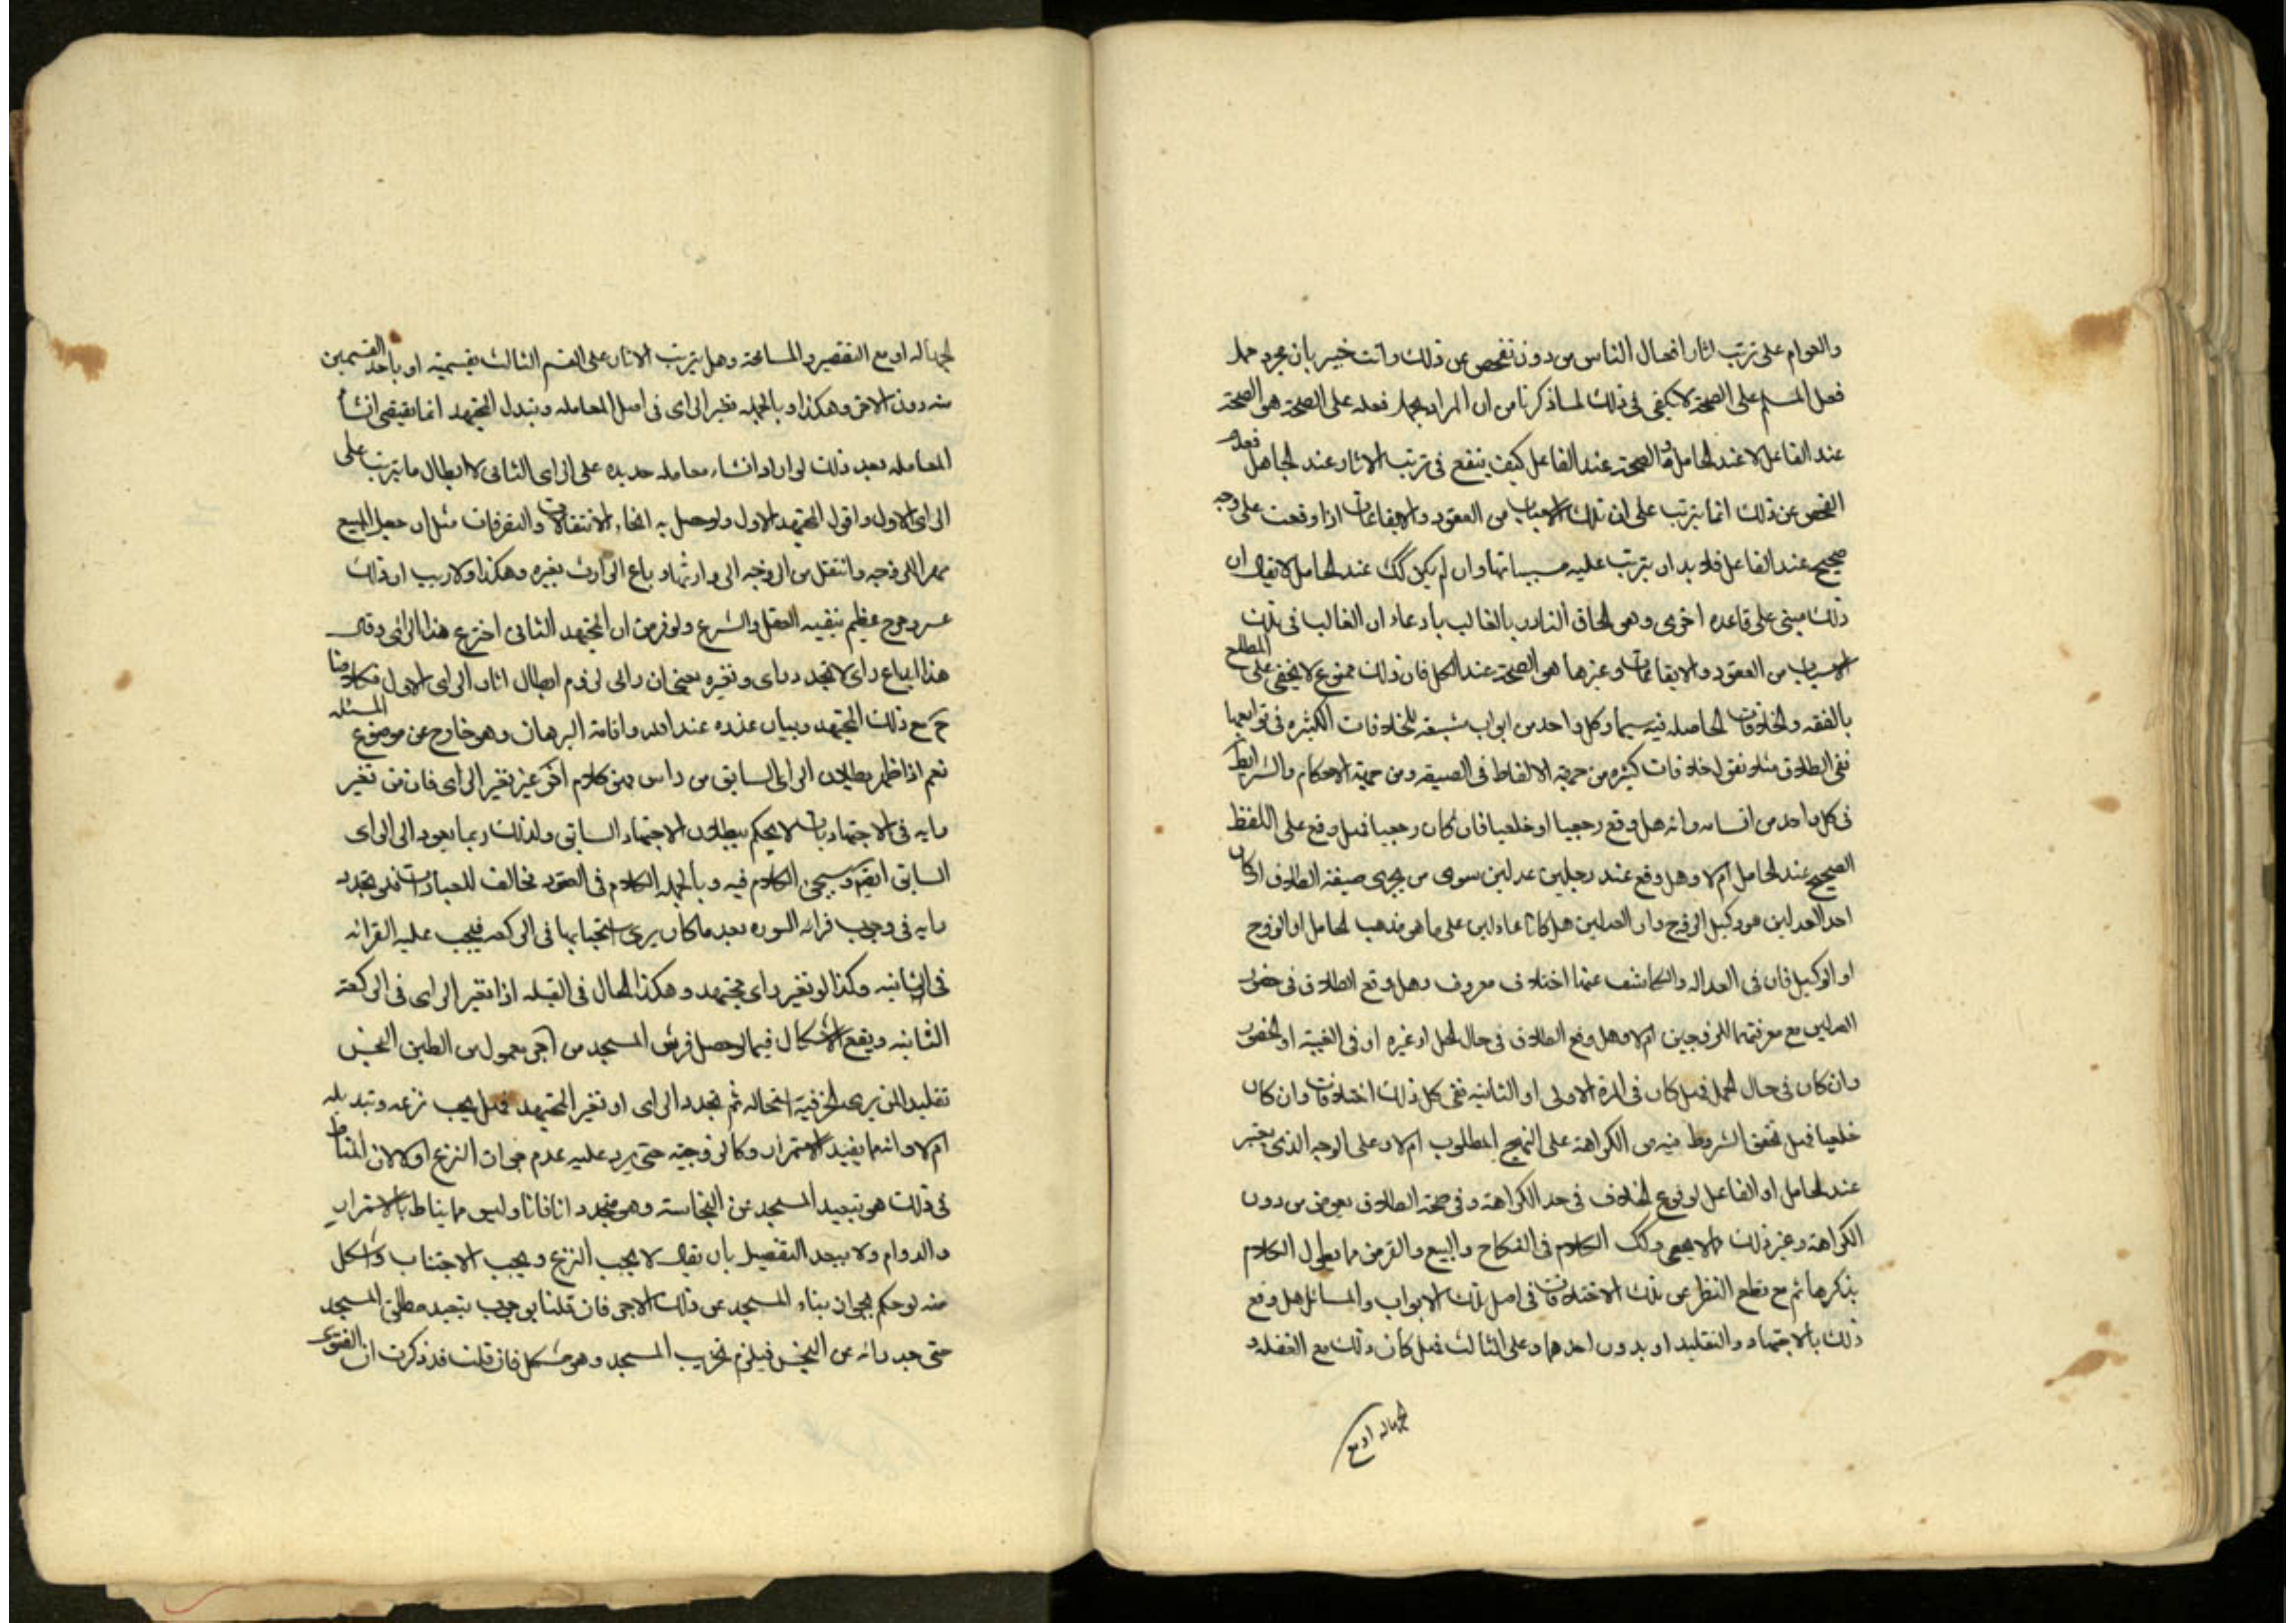 والعوام على ترتب اثار افعال الناس من دون تفحص عن ذلك وانت خبير بان مجرد حمل
فعل المسلم على الصحة لا يكفي في ذلك لما ذكرنا من ان المراد بحمل فعله على الصحة هو الصحة
عند الفاعل لا عند الحامل والصحة عند الفاعل كيف ينفع في ترتب الاثار عند الجاهل فعدم
الفحص عن ذلك انما يترتب على ان تلك الاسباب من العقود والايقاعات اذا وقعت على وجه
صحيح عند الفاعل فلا بد ان يترتب عليه مسبباتها وان لم يكن كك عند الحامل لا يقال ان
ذلك مبنى على قاعده اخرى وهي الحاق النادر بالغالب بادعاء ان الغالب في تلك
الاسباب من العقود والايقاعات وغيرها هو الصحة عند الكل فان ذلك ممنوع لا يخفى على المطلع
بالفقه والخلافات الحاصله فيه سيما وكل واحد من ابواب متسعة للخلافات الكثيره في توابعها
ففي الطلاق مثلا نقول خلافات كثيره من جهة الالفاظ في الصيغه ومن جهة الاحكام والشرايط
في كل واحد من اقسامه وانه هل وقع رجعيا او خلعيا فان كان رجعيا فهل وقع على اللفظ
الصحيح عند الحامل ام لا وهل وقع عند رجلين عدلين سوى من يجرى صيغة الطلاق او كان
احد العدلين هو وكيل الزوج وان العدلين هل كانا عادلين على ما هو مذهب الحامل او الزوج
او الوكيل فان في العداله والكاشف عنها اختلاف معروف وهل وقع الطلاق في حضور
العدلين مع معرفتهما للزوجين ام لا وهل وقع الطلاق في حال الحمل او غيره او في الغيبة او الحضور
وان كان في حال الحمل فهل كان في المرة الاولى او الثانيه ففي كل ذلك اختلافات وان كان
خلعيا فهل تحقق الشروط فيه من الكراهة على النهج المطلوب ام لا وعلى الوجه الذي يعتبر
عند الحامل او الفاعل لوقوع الخلاف في حد الكراهة وفي صحة الطلاق بعوض من دون
الكراهة وغير ذلك مما لا يحصى وكك الكلام في النكاح والبيع والقرض مما يطول الكلام
بذكرها ثم مع قطع النظر عن تلك الاختلافات في اصل تلك الابواب والمسائل هل وقع
ذلك بالاجتهاد والتقليد او بدون احدهما وعلى الثالث فهل كان ذلك مع الغفله و
الجهاله او مع
الجهاله او مع التقصير والمسامحة وهل يترتب الاثار على القسم الثالث بقسميه او باحد القسمين
منه دون الاخر وهكذا وبالجمله تغير الراى في اصل المعامله وتبدل المجتهد انما يقتضى انشاء
المعامله بعد ذلك لو اراد انشاء معامله جديده على الراى الثانى لا ابطال ما يترتب على
الراى الاول واقول المجتهد الاول ولو حصل به انحاء الانتقالات والتفرقات مثل ان جعل المبيع
مهرا للزوجه وانتقل من الزوجه الى وارثها وباع الوارث بغيره وهكذا ولا ريب ان ذلك
عسر وحرج عظيم ينفيه العقل والشرع ولو فرض ان المجتهد الثانى اخترع هذا الراى وقال
هذا اتباع راى لا تجدد راى وتغيره بمعنى ان رائى لزوم ابطال اثار الراى الاول فكلامنا
ح مع ذلك المجتهد وبيان عذره عند الله واقامة البرهان وهو خارج عن موضوع المسئله
نعم اذا ظهر بطلان الراى السابق من راس فهو كلام اخر غير تغير الراى فان من تغير
رايه في الاجتهاديات لا يحكم ببطلان الاجتهاد السابق ولذلك ربما يعود الى الراى
السابق ايضا وسيجئ الكلام فيه وبالجمله الكلام في العقود مخالف للعبادات فلو تجدد
رايه في وجوب قرائة السوره بعد ما كان يرى استحبابها في الركعه فيجب عليه القرائه
في الثانيه وكذا لو تغير راى مجتهده وهكذا الحال في القبله اذا تغير الراى في الركعة
الثانيه ويقع الاشكال فيما لو حصل فرش المسجد من آجر معمول من الطين النجس
تقليدا لمن يرى الخزفية استحاله ثم تجدد الراى او تغير المجتهد فهل يجب نزعه وتبديله
ام لا وانما يفيد الاستمرار وكالزوجية حتى يرد عليه عدم جواز النزع اولا لان المناط
في ذلك هو تبعيد المسجد عن النجاسة وهو متجدد انا فانا وليس مما يناط بالاستمرار
والدوام ولا يبعد التفصيل بان يقال لا يجب النزع ويجب الاجتناب واشكل
منه لو حكم بجواز بناء المسجد عن ذلك الاجر فان قلنا بوجوب تبعيد مطلق المسجد
حتى جدرانه عن النجس فيلزم تخريب المسجد وهو مشكل فان قلت قد ذكرت ان الفتوى